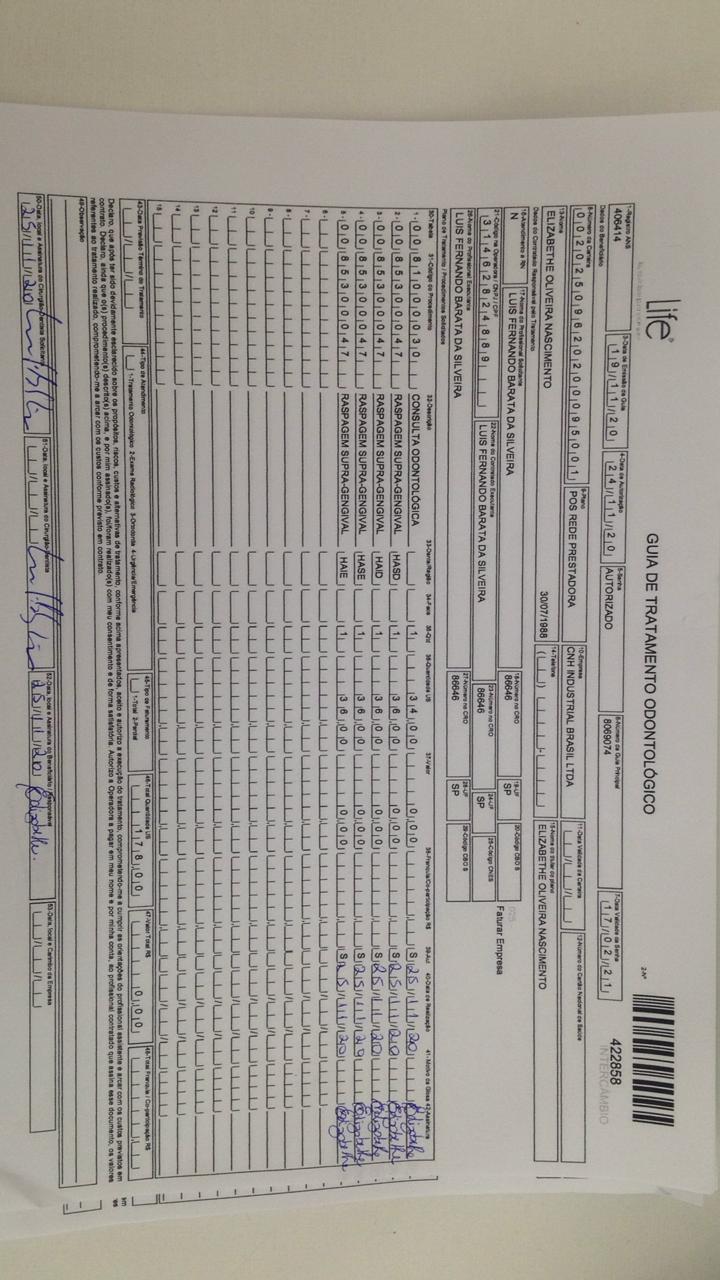 Life
GUIA DE TRATAMENTO ODONTOLÓGICO
2-Nº
422858
INTERCÂMBIO
1-Registro ANS 3-Data de Emissão da Guia 4-Data de Autorização 5-Senha 6-Número da Guia Principal 7-Data Validade da Senha
406414 19/11/20 24/11/20 AUTORIZADO 8069074 17/02/21
Dados do Beneficiário
8-Número da Carteira 9-Plano 10-Empresa 11-Data Validade da Carteira 12-Número do Cartão Nacional de Saúde
00202509620200095001 POS REDE PRESTADORA CNH INDUSTRIAL BRASIL LTDA
13-Nome 14-Telefone 15-Nome do titular do plano
ELIZABETHE OLIVEIRA NASCIMENTO 30/07/1988 ELIZABETHE OLIVEIRA NASCIMENTO
Dados do Contratado Responsável pelo Tratamento
16-Atendimento a RN 17-Nome do Profissional Solicitante 18-Número no CRO 19-UF 20-Código CBO S
N LUIS FERNANDO BARATA DA SILVEIRA 86646 SP 025
Faturar Empresa
21-Código na Operadora / CNPJ / CPF 22-Nome do Contratado Executante 23-Número no CRO 24-UF 25-Código CNES
31462824889 LUIS FERNANDO BARATA DA SILVEIRA 86646 SP
26-Nome do Profissional Executante 27-Número no CRO 28-UF 29-Código CBO S
LUIS FERNANDO BARATA DA SILVEIRA 86646 SP
Plano de Tratamento / Procedimentos Solicitados
30-Tabela 31-Código do Procedimento 32-Descrição 33-Dente/Região 34-Face 35-Qtd 36-Quantidade US 37-Valor 38-Franquia/Co-participação R$ 39-Aut 40-Data de Realização 41- Motivo da Glosa 42-Assinatura
1 - 00 81000030 CONSULTA ODONTOLÓGICA 1 34,00 0,00 S 25/11/20 Elizabethe
2 - 00 85300047 RASPAGEM SUPRA-GENGIVAL HASD 1 36,00 0,00 S 25/11/20 Elizabethe
3 - 00 85300047 RASPAGEM SUPRA-GENGIVAL HAID 1 36,00 0,00 S 25/11/20 Elizabethe
4 - 00 85300047 RASPAGEM SUPRA-GENGIVAL HASE 1 36,00 0,00 S 25/11/20 Elizabethe
5 - 00 85300047 RASPAGEM SUPRA-GENGIVAL HAIE 1 36,00 0,00 S 25/11/20 Elizabethe
6 -
7 -
8 -
9 -
10
11
12
13
14
15
43-Data Previsão Término do Tratamento 44-Tipo de Atendimento 45-Tipo de Faturamento 46-Total Quantidade US 47-Valor Total R$ 48-Total Franquia / Co-participação R$
1-Tratamento Odontológico 2-Exame Radiológico 3-Ortodontia 4-Urgência/Emergência 1-Total 2-Parcial 178,00 0,00
Declaro, que após ter sido devidamente esclarecido sobre os propósitos, riscos, custos e alternativas de tratamento, conforme acima apresentados, aceito e autorizo a execução do tratamento, comprometendo-me a cumprir as orientações do profissional assistente e arcar com os custos previstos em
contrato. Declaro, ainda que o(s) procedimento(s) descrito(s) acima, e por mim assinado(s), foi/foram realizado(s) com meu consentimento e de forma satisfatória. Autorizo a Operadora a pagar em meu nome e por minha conta, ao profissional contratado que assina esse documento, os valores
referentes ao tratamento realizado, comprometendo-me a arcar com os custos conforme previsto em contrato.
49-Observação
50-Data, local e Assinatura do Cirurgião-Dentista Solicitante 51-Data, local e Assinatura do Cirurgião-Dentista 52-Data, local e Assinatura do Beneficiário / Responsável 53-Data, local e Carimbo da Empresa
25/11/20 25/11/20 Elizabethe.